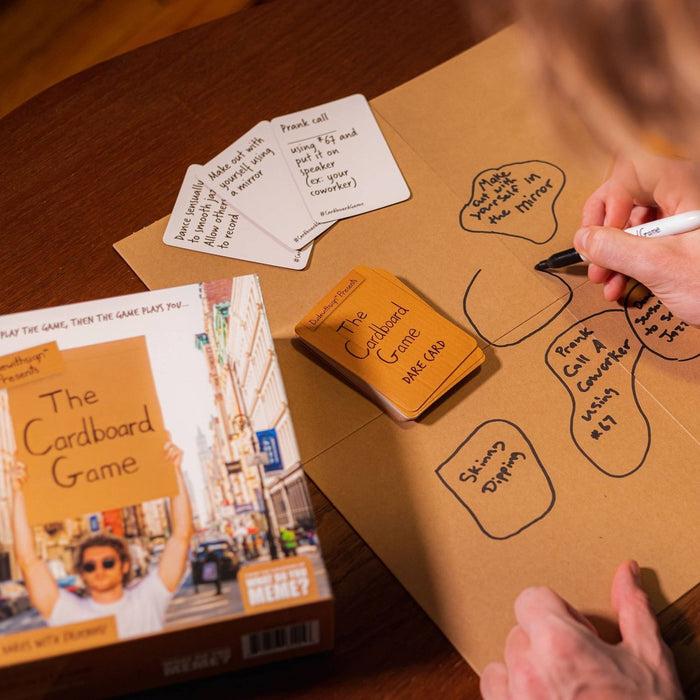 Prank call
using *67 and
put it on
speaker
(ex: your
coworker)
#CardboardGame
Make out with
yourself using
a mirror
Dance sensually
to smooth jaz
Allow other
to record
PLAY THE GAME, THEN THE GAME PLAYS YOU...
Presents
The
Cardboard
Game
WHAT DO YOU
MEME?
Dudewithsign™ Presents
The
Cardboard
Game
DARE CARD
Make
out with
yourself in
the mirror
Prank
Call A
Coworker
using
*67
to S
Jazz
Skinny
Dipping
Game